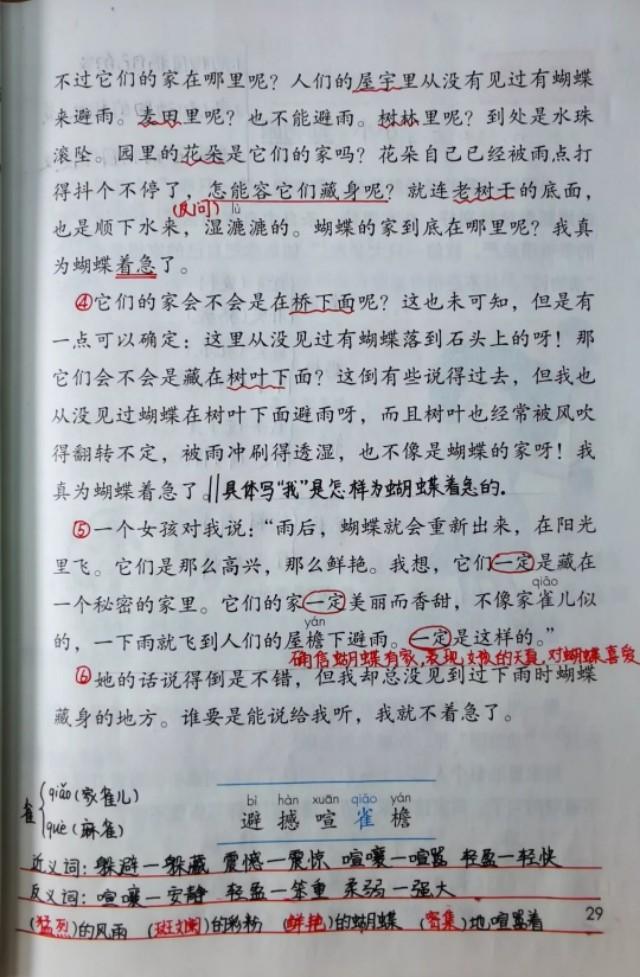 不过它们的家在哪里呢？人们的屋宇里从没有见过有蝴蝶
来避雨。麦田里呢？也不能避雨。树林里呢？到处是水珠
滚坠。园里的花朵是它们的家吗？花朵自己已经被雨点打
得抖个不停了，怎能容它们藏身呢？就连老树干的底面，
(反问)
lù
也是顺下水来，湿漉漉的。蝴蝶的家到底在哪里呢？我真
为蝴蝶着急了。
④它们的家会不会是在桥下面呢？这也未可知，但是有
一点可以确定：这里从没见过有蝴蝶落到石头上的呀！那
它们会不会是藏在树叶下面？这倒有些说得过去，但我也
从没见过蝴蝶在树叶下面避雨呀，而且树叶也经常被风吹
得翻转不定，被雨冲刷得透湿，也不像是蝴蝶的家呀！我
真为蝴蝶着急了。‖具体写“我”是怎样为蝴蝶着急的.
⑤一个女孩对我说：“雨后，蝴蝶就会重新出来，在阳光
里飞。它们是那么高兴，那么鲜艳。我想，它们一定是藏在
qiǎo
一个秘密的家里。它们的家一定美丽而香甜，不像家雀儿似
yán
的，一下雨就飞到人们的屋檐下避雨。一定是这样的。”
确信蝴蝶有家,表现女孩的天真,对蝴蝶喜爱
⑥她的话说得倒是不错，但我却总没见到过下雨时蝴蝶
藏身的地方。谁要是能说给我听，我就不着急了。
雀 qiǎo (家雀儿)
què (麻雀)
bì hàn xuān qiǎo yán
避 撼 喧 雀 檐
近义词：躲避—躲藏 震憾—震惊 喧嚷—喧嚣 轻盈—轻快
反义词：喧嚷—安静 轻盈—笨重 柔弱—强大
(猛烈)的风雨 (斑斓)的彩粉 (鲜艳)的蝴蝶 (密集)地喧嚣着
29